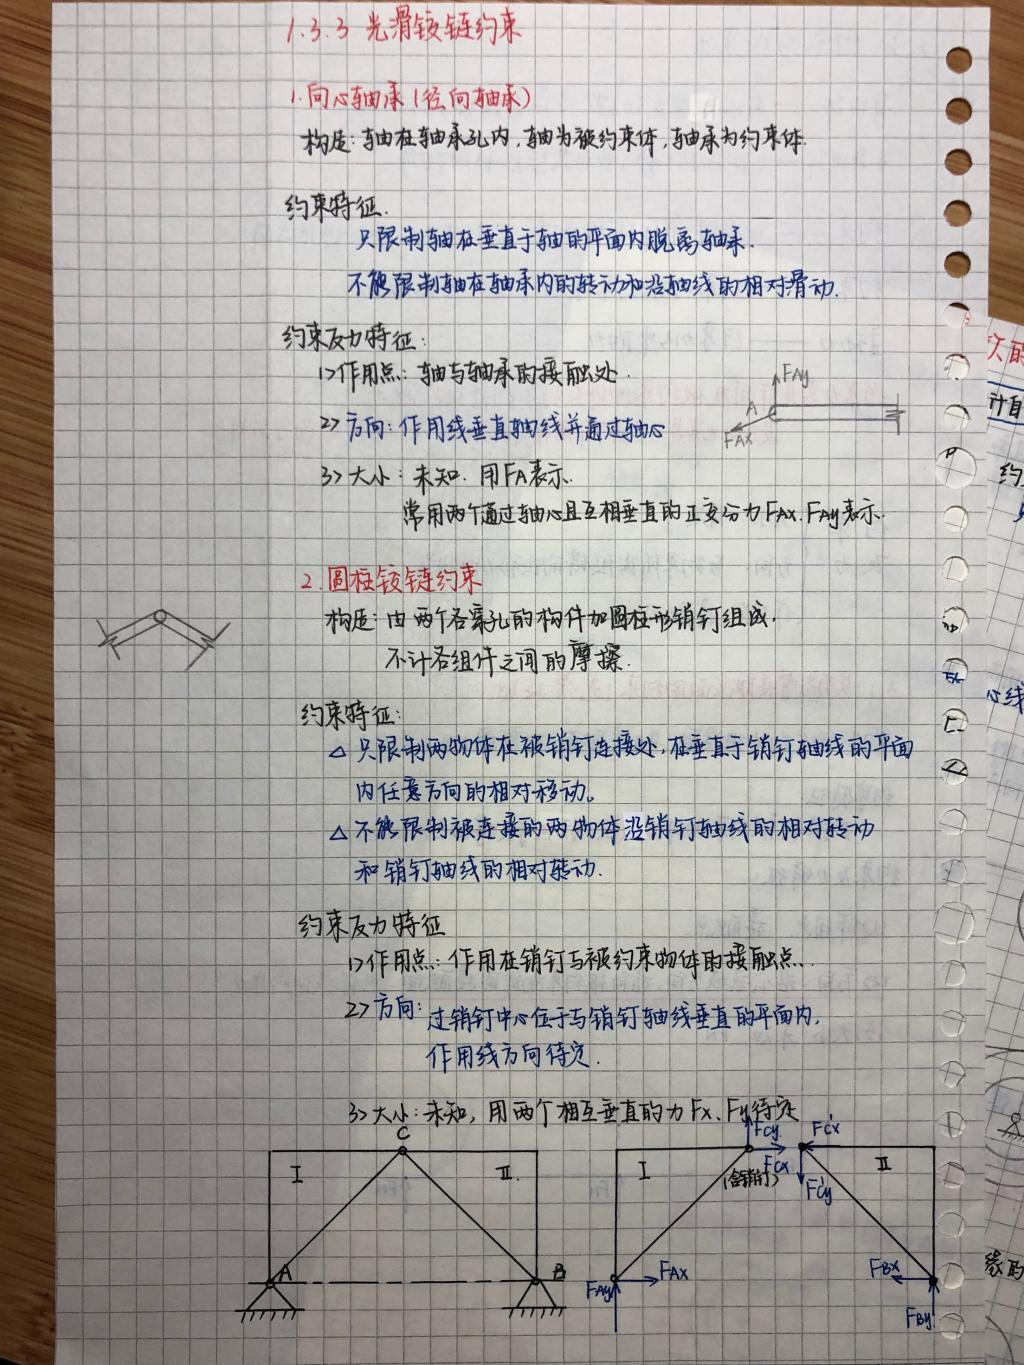 1.3.3 光滑铰链约束
1.向心轴承(径向轴承)
构造:轴在轴承孔内,轴为被约束体,轴承为约束体.
约束特征.
只限制轴在垂直于轴的平面内脱离轴承.
不能限制轴在轴承内的转动和沿轴线的相对滑动.
约束反力特征:
1>作用点:轴与轴承的接触处.
FAy
A
FAX
2>方向:作用线垂直轴线并通过轴心
3>大小:未知.用FA表示.
常用两个通过轴心且互相垂直的正交分力FAx.FAy表示.
2.圆柱铰链约束
构造:由两个各穿孔的构件加圆柱形销钉组成,
不计各组件之间的摩擦.
约束特征:
△ 只限制两物体在被销钉连接处,在垂直于销钉轴线的平面
内任意方向的相对移动。
△ 不能限制被连接的两物体沿销钉轴线的相对转动
和销钉轴线的相对转动.
约束反力特征
1>作用点:作用在销钉与被约束物体的接触点.
2>方向:过销钉中心位于与销钉轴线垂直的平面内,
作用线方向待定.
3>大小:未知,用两个相互垂直的力Fx、Fy待定
C
I
II
A
B
FCy
FCx
(含销钉)
I
FAx
FAy
FC'x
FC'y
II
FBx
FBy